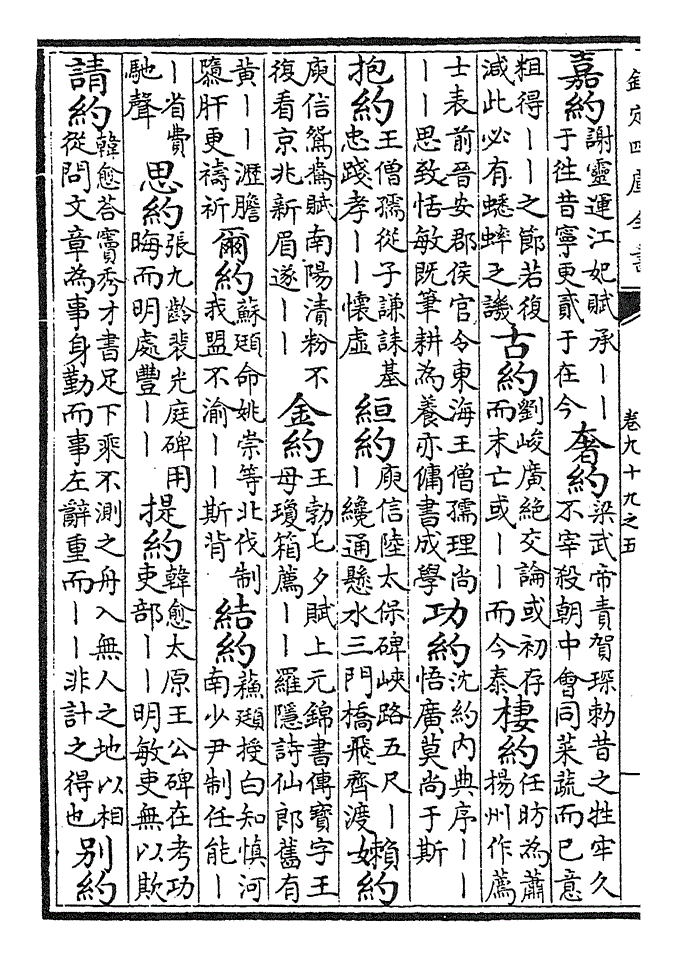 欽定四庫全書
卷九十九之五
嘉約謝靈運江妃賦承丨丨于徃昔寧更貳于在今奢約梁武帝責賀琛勅昔之牲牢久不宰殺朝中會同菜蔬而已意
粗得丨丨之節若復減此必有蟋蟀之譏古約劉峻廣絶交論或初存而末亡或丨丨而今泰棲約任昉為蕭揚州作薦
士表前晉安郡侯官令東海王僧孺理尚丨丨思致恬敏既筆耕為養亦傭書成學功約沈約内典序丨丨悟廣莫尚于斯
抱約王僧孺從子謙誄基忠踐孝丨丨懷虛絙約庾信陸太保碑峽路五尺丨丨纜通懸水三門橋飛齊渡嬾約
庾信鴛鴦賦南陽漬粉不復看京兆新眉遂丨丨金約王勃七夕賦上元錦書傳寶字王母瓊箱薦丨丨羅隱詩仙郎舊有
黄丨丨瀝膽隳肝更禱祈爾約蘇頲命姚崇等北伐制我盟不渝丨丨斯背結約蘇頲授白知慎河南少尹制任能丨
丨省費馳聲思約張九齡裴光庭碑用晦而明處豐丨丨提約韓愈太原王公碑在考功吏部丨丨明敏吏無以欺
請約韓愈荅竇秀才書足下乘不測之舟入無人之地以相從問文章為事身勤而事左辭重而丨丨非計之得也别約